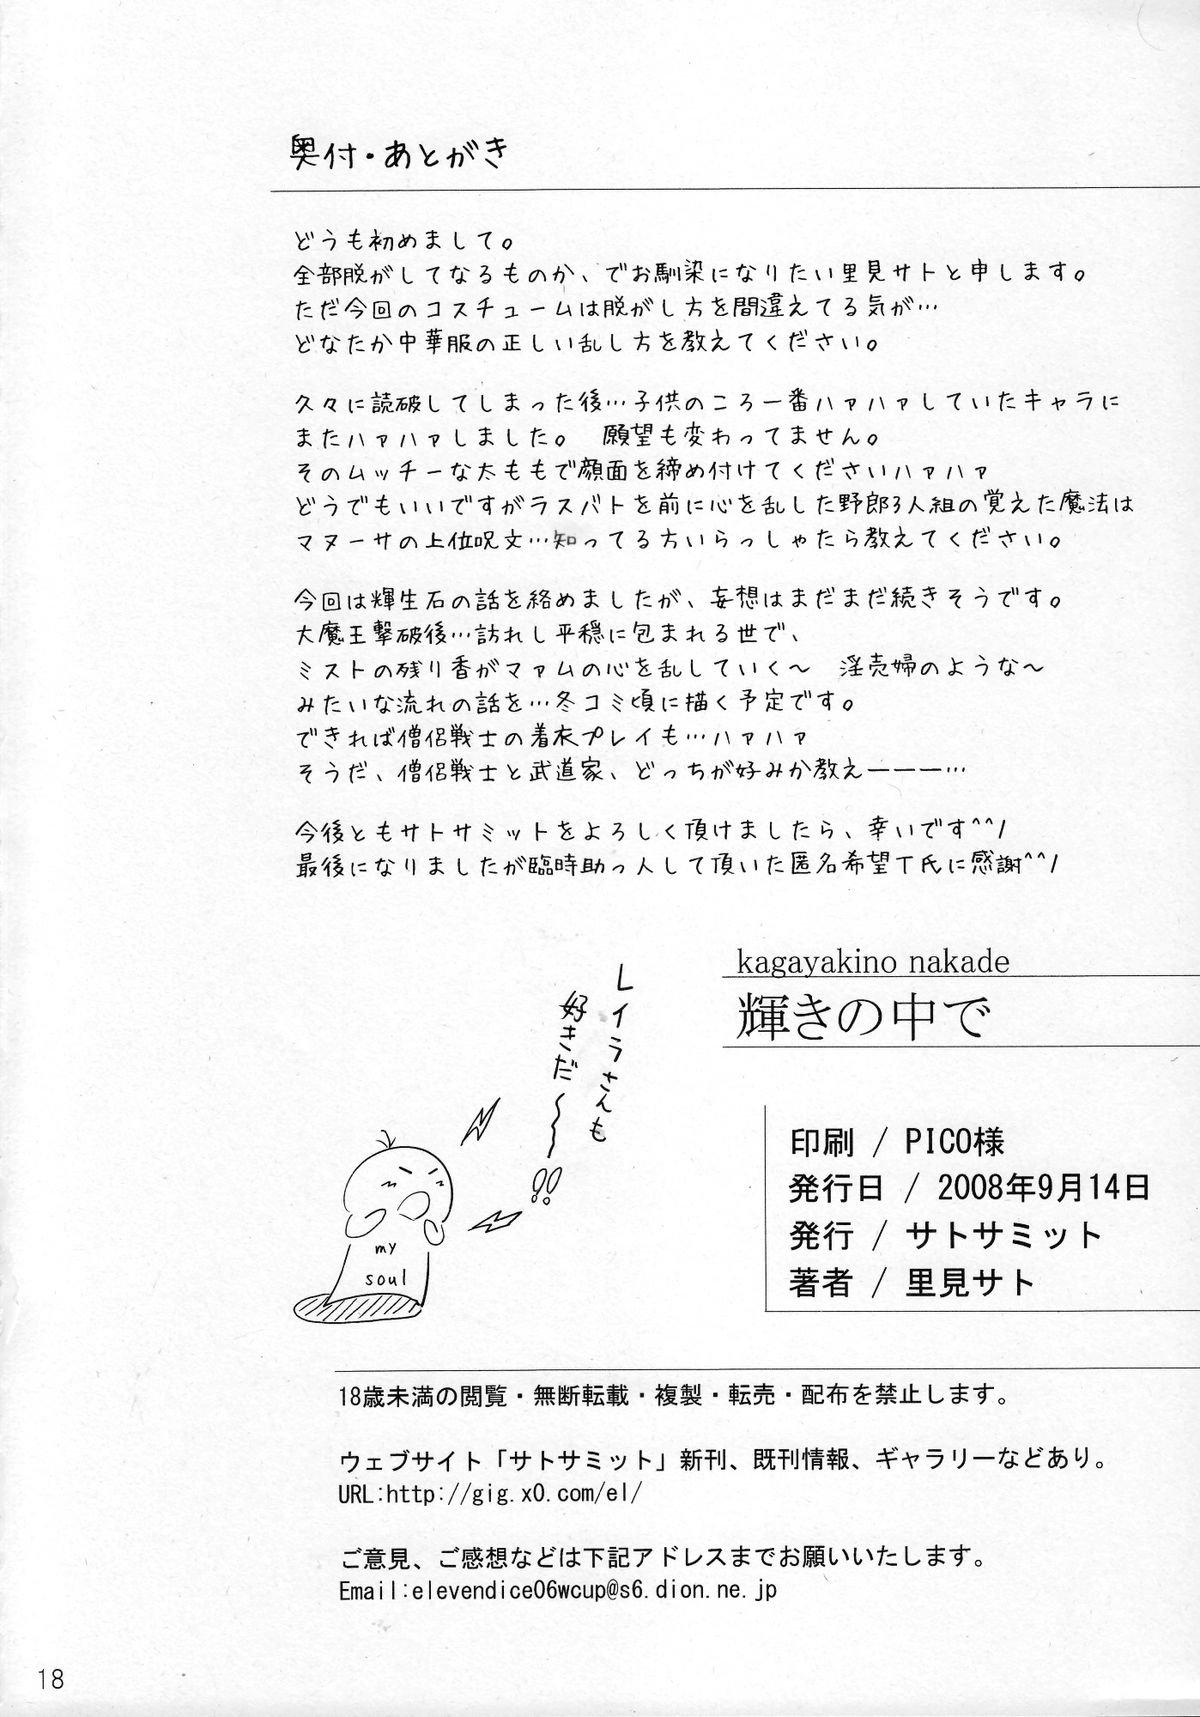 奥付・あとがき
どうも初めまして。
全部脱がしてなるものか、でお馴染になりたい里見サトと申します。
ただ今回のコスチュームは脱がし方を間違えてる気が…
どなたか中華服の正しい乱し方を教えてください。
久々に読破してしまった後…子供のころ一番ハァハァしていたキャラに
またハァハァしました。　願望も変わってません。
そのムッチーな太ももで顔面を締め付けてくださいハァハァ
どうでもいいですがラスバトを前に心を乱した野郎3人組の覚えた魔法は
マヌーサの上位呪文…知ってる方いらっしゃたら教えてください。
今回は輝生石の話を絡めましたが、妄想はまだまだ続きそうです。
大魔王撃破後…訪れし平穏に包まれる世で、
ミストの残り香がマァムの心を乱していく～　淫売婦のような～
みたいな流れの話を…冬コミ頃に描く予定です。
できれば僧侶戦士の着衣プレイも…ハァハァ
そうだ、僧侶戦士と武道家、どっちが好みか教えーーー…
今後ともサトサミットをよろしく頂けましたら、幸いです^^/
最後になりましたが臨時助っ人して頂いた匿名希望T氏に感謝^^/
レイラさんも
好きだ～～～!!
my
soul
kagayakino nakade
輝きの中で
印刷 / PICO様
発行日 / 2008年9月14日
発行 / サトサミット
著者 / 里見サト
18歳未満の閲覧・無断転載・複製・転売・配布を禁止します。
ウェブサイト「サトサミット」新刊、既刊情報、ギャラリーなどあり。
URL:http://gig.x0.com/el/
ご意見、ご感想などは下記アドレスまでお願いいたします。
Email:elevendice06wcup@s6.dion.ne.jp
18